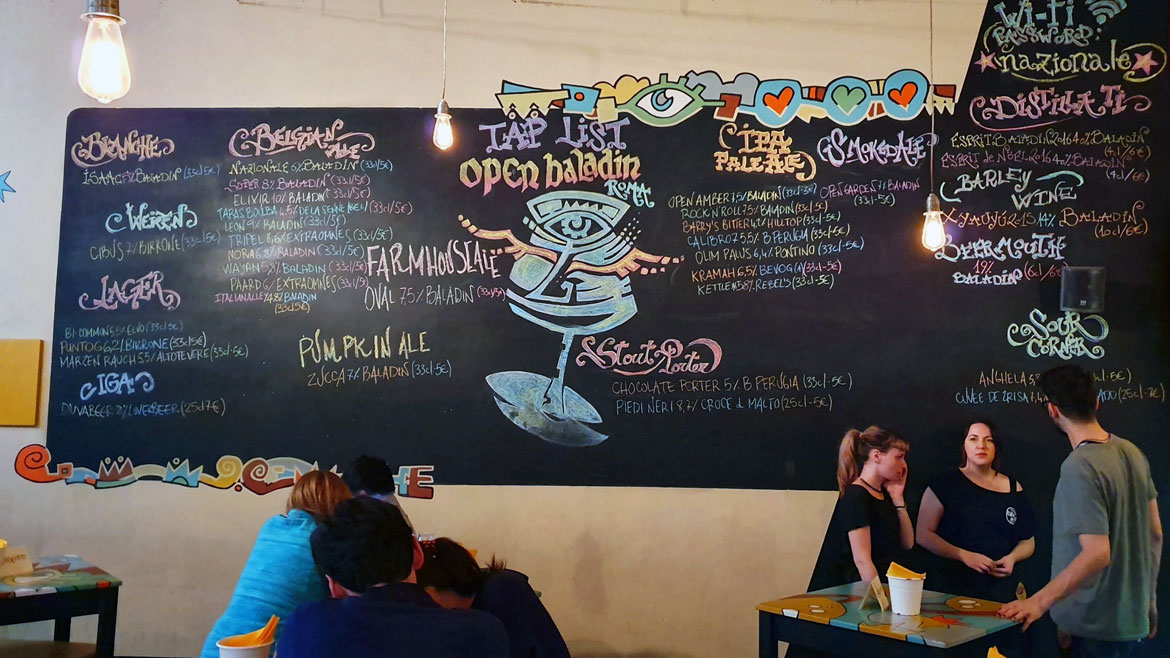 BLANCHE
ISAAC 5% BALADIN (33cl 5€)
WEIZEN
CIBUS 7% BIRRONE (33cl-5€)
LAGER
BI-COMMON 5,5% EVO (33cl-5€)
PUNTO G 6,2% BIRRONE (33cl 5€)
MARZEN RAUCH 5,5% ALTOTEVERE (33cl-5€)
IGA
LOVEBEER (25cl 7€)
BELGIAN ALE
NAZIONALE 6% BALADIN (33cl/5€)
SUPER 8% BALADIN (33cl/5€)
ELIXIR 10% BALADIN (33cl/5€)
TARAS BOULBA 4,5% DE LA SENNE (33cl/5€)
LEON 9% BALADIN (33cl/5€)
TRIPEL 6,6% EXTRAOMNES (33cl/5€)
NORA 6,8% BALADIN (33cl/5€)
WAYAN 5,8% BALADIN (33cl/5€)
PAARD 6% EXTRAOMNES (33cl/5€)
ITALIAN ALLEY 4,8% BALADIN
(33cl 5€)
FARMHOUSE ALE
OVAL 7,5% BALADIN (33cl/5€)
PUMPKIN ALE
ZUCCA 7% BALADIN (33cl-5€)
TAP LIST
open baladin
ROMA
IPA
PALE ALE
OPEN AMBER 7,5% BALADIN (33cl-5€)
ROCK N ROLL 7,5% BALADIN (33cl-5€)
BARRY'S BITTER 4,2% HILLTOP (33cl-5€)
CALIBRO 7 5,5% B. PERUGIA (33cl-5€)
OLIM PALUS 6,4% PONTINO (33cl-5€)
KRAMAH 6,5% BEVOG (33cl-5€)
KETTLEN 5,8% REBEL'S (33cl-5€)
SMOKED ALE
OPEN GARDEN 7% BALADIN
(33cl-5€)
Stout Porter
CHOCOLATE PORTER 5% B PERUGIA (33cl-5€)
PIEDI NERI 8,7% CROCE di MALTO (25cl-5€)
Wi-Fi
PASSWORD:
nazionale
DISTILLATI
ESPRIT BALADIN 2016 40% BALADIN
(4cl/6€)
ESPRIT de NÖEL 2016 40% BALADIN
(4cl/6€)
BARLEY
WINE
XYAUYÙ 2015 14% BALADIN
(10cl/6€)
BEERMOUTH
19%
BALADIN (6cl/6€)
SOUR
CORNER
ANGHELA
(33cl-5€)
CUVÉE DE
(25cl-7€)